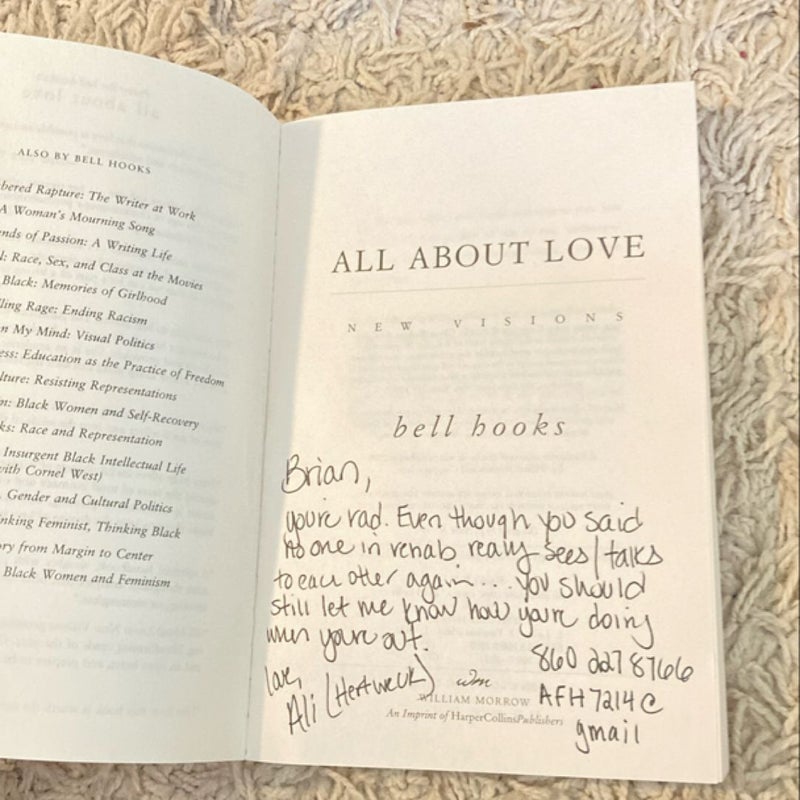 ALSO BY BELL HOOKS
bered Rapture: The Writer at Work
A Woman's Mourning Song
nds of Passion: A Writing Life
l: Race, Sex, and Class at the Movies
Black: Memories of Girlhood
ling Rage: Ending Racism
n My Mind: Visual Politics
ess: Education as the Practice of Freedom
lture: Resisting Representations
m: Black Women and Self-Recovery
ks: Race and Representation
Insurgent Black Intellectual Life
with Cornel West)
Gender and Cultural Politics
nking Feminist, Thinking Black
ory from Margin to Center
Black Women and Feminism
ALL ABOUT LOVE
NEW VISIONS
bell hooks
Brian,
you're rad. Even though you said
No one in rehab really sees/talks
to each other again... you should
still let me know how you're doing
when you're out.
love,
Ali (Hertweck)
860 227 8766
AFH7214@
gmail
wm
WILLIAM MORROW
An Imprint of HarperCollinsPublishers